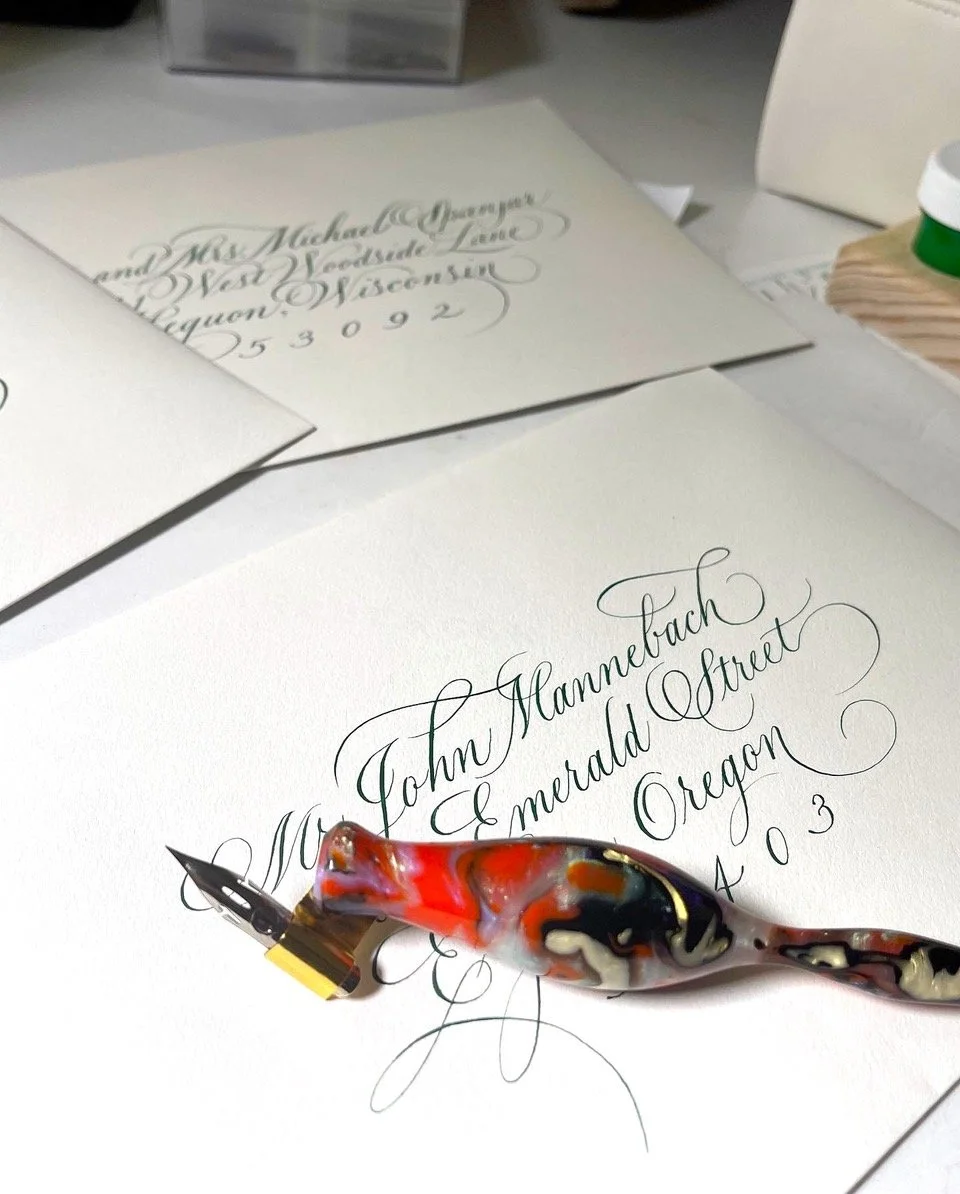 and Mrs Michael Spanjar
West Woodside Lane
equon, Wisconsin
53092
Mr John Mannebach
Emerald Street
Oregon
403